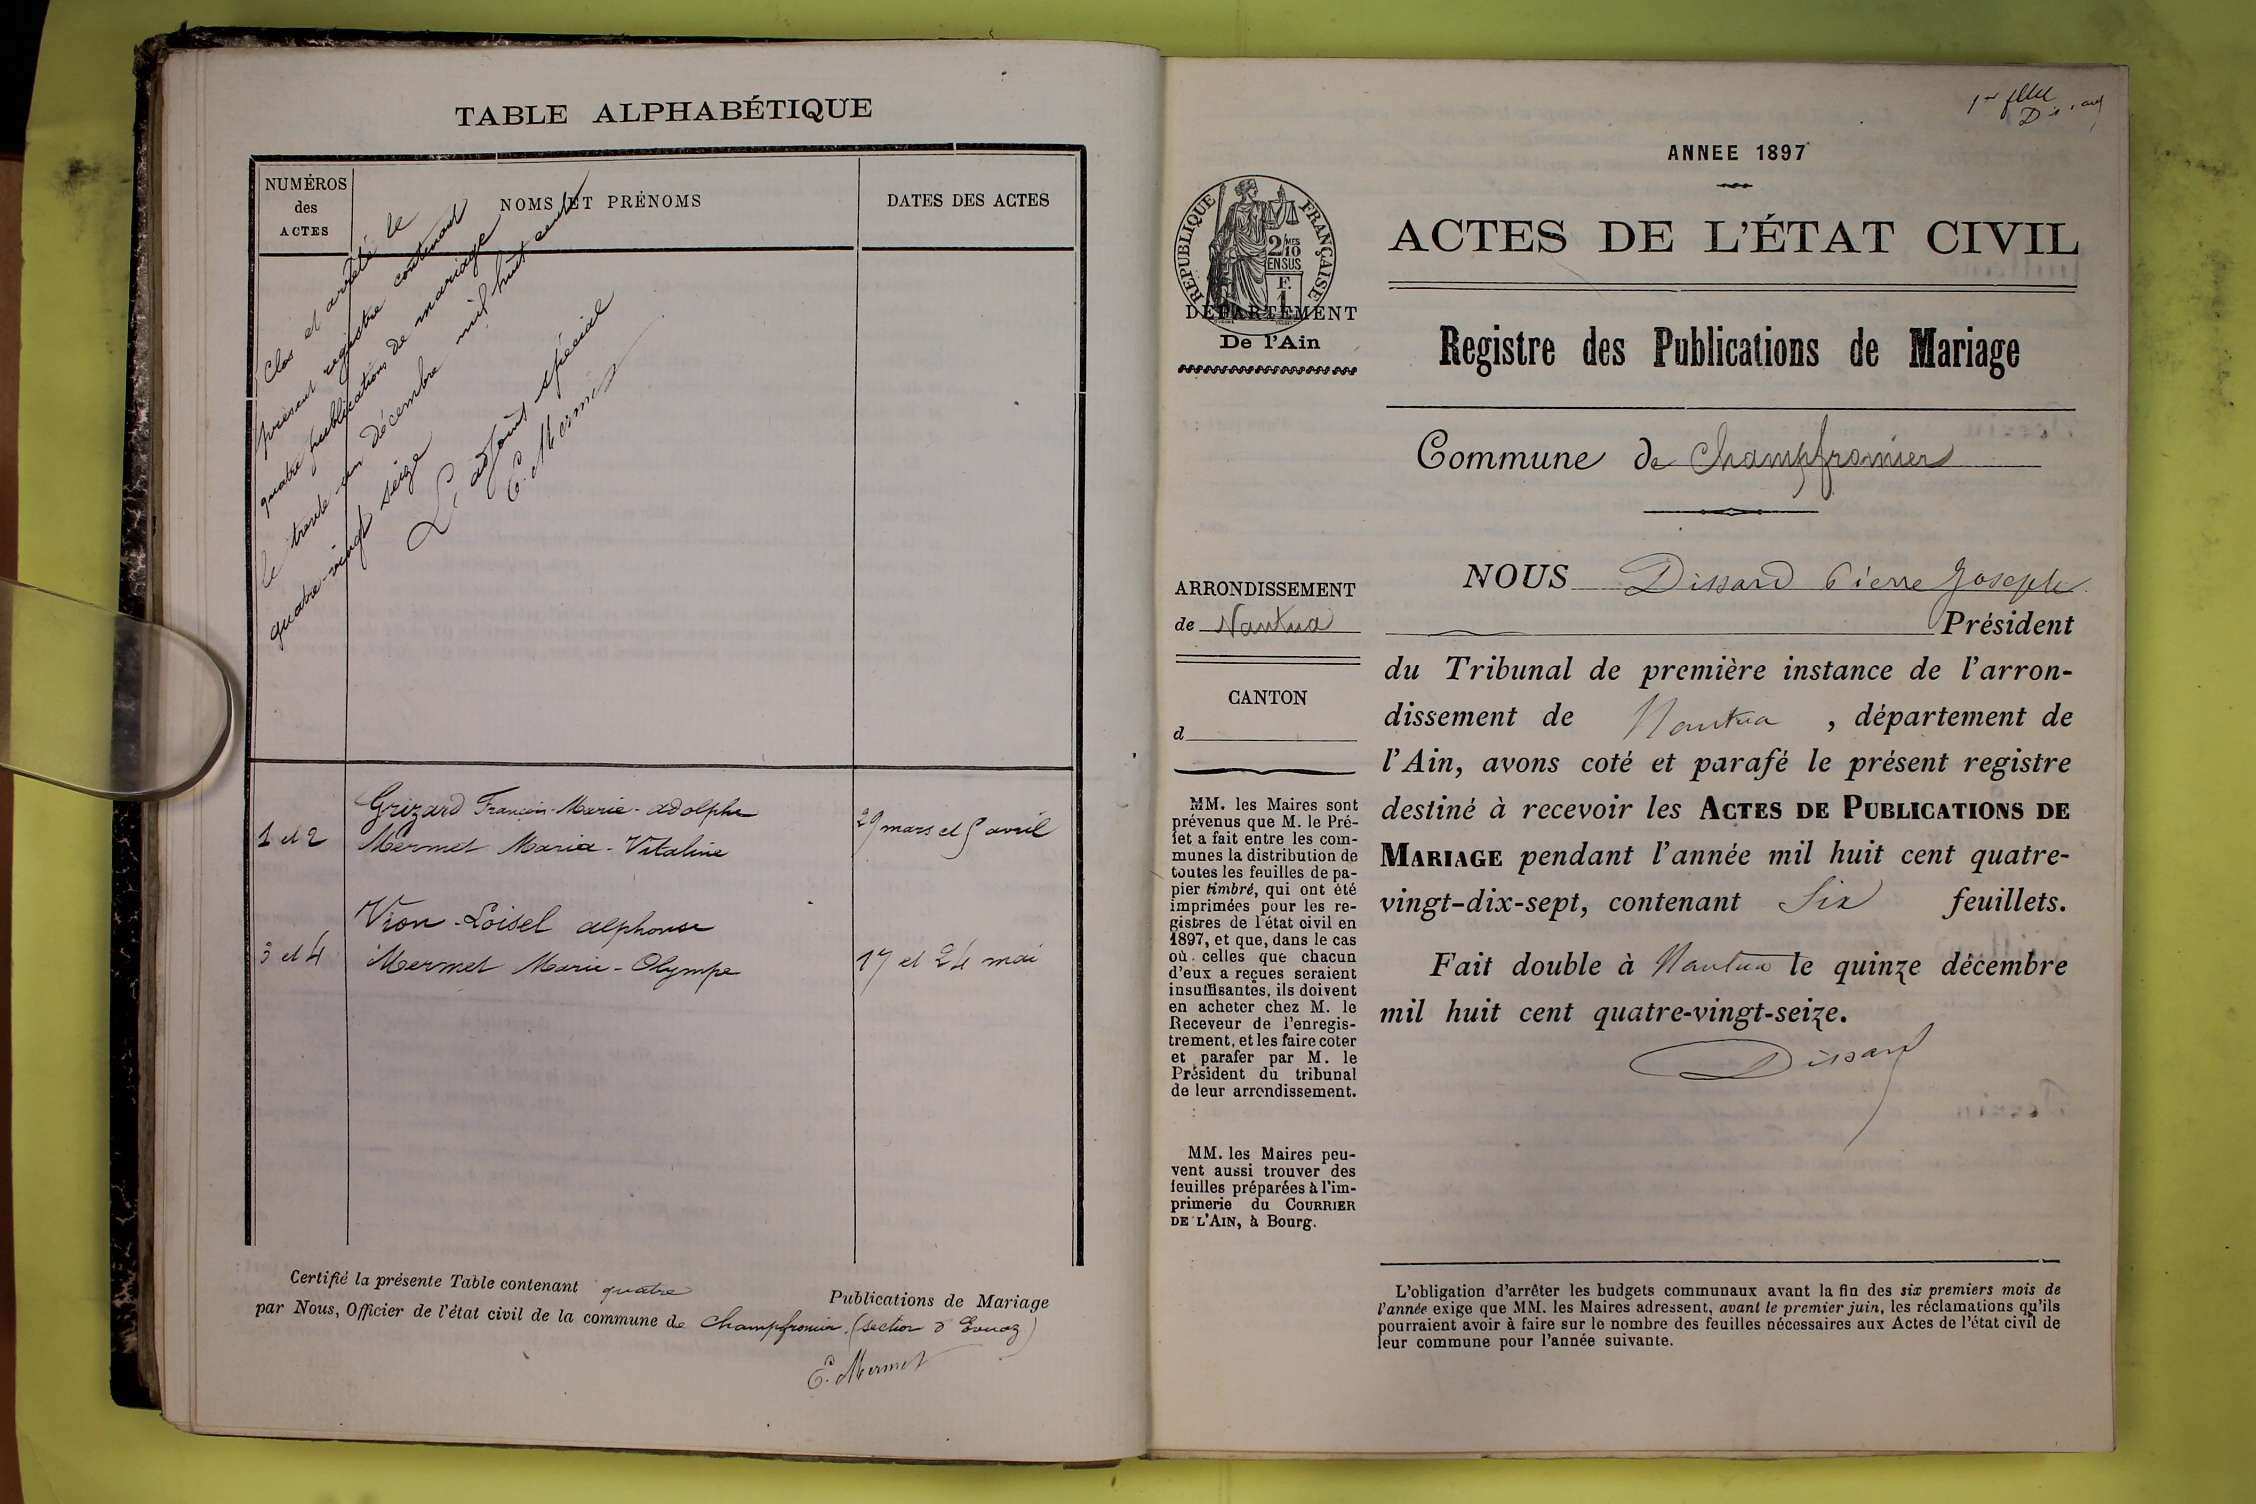 TABLE ALPHABÉTIQUE
NUMÉROS
des
ACTES
NOMS ET PRÉNOMS
DATES DES ACTES
Clos et arrêté le
présent registre contenant
quatre publications de mariage
le trente un décembre mil huit cent
quatre-vingt seize
L'adjoint spécial
E. Mermet
1 et 2
Grizard François-Marie-adolphe
Mermet Maria-Vitaline
29 mars et 5 avril
3 et 4
Vion-Loisel alphonse
Mermet Marie-Olympe
17 et 24 mai
Certifié la présente Table contenant quatre Publications de Mariage
par Nous, Officier de l'état civil de la commune de Champfromier. (section d'Evuaz)
E. Mermet
1er feuillet
ANNEE 1897
RÉPUBLIQUE FRANÇAISE
2/10MES
EN SUS
F.
1
DÉPARTEMENT
De l'Ain
ACTES DE L'ÉTAT CIVIL
Registre des Publications de Mariage
Commune de Champfromier
ARRONDISSEMENT
de Nantua
CANTON
d
MM. les Maires sont
prévenus que M. le Pré-
fet a fait entre les com-
munes la distribution de
toutes les feuilles de pa-
pier timbré, qui ont été
imprimées pour les re-
gistres de l'état civil en
1897, et que, dans le cas
où celles que chacun
d'eux a reçues seraient
insuffisantes, ils doivent
en acheter chez M. le
Receveur de l'enregis-
trement, et les faire coter
et parafer par M. le
Président du tribunal
de leur arrondissement.
MM. les Maires peu-
vent aussi trouver des
feuilles préparées à l'im-
primerie du COURRIER
DE L'AIN, à Bourg.
NOUS Dissard Pierre Joseph
Président
du Tribunal de première instance de l'arron-
dissement de Nantua, département de
l'Ain, avons coté et parafé le présent registre
destiné à recevoir les ACTES DE PUBLICATIONS DE
MARIAGE pendant l'année mil huit cent quatre-
vingt-dix-sept, contenant Six feuillets.
Fait double à Nantua le quinze décembre
mil huit cent quatre-vingt-seize.
Dissard
L'obligation d'arrêter les budgets communaux avant la fin des six premiers mois de
l'année exige que MM. les Maires adressent, avant le premier juin, les réclamations qu'ils
pourraient avoir à faire sur le nombre des feuilles nécessaires aux Actes de l'état civil de
leur commune pour l'année suivante.